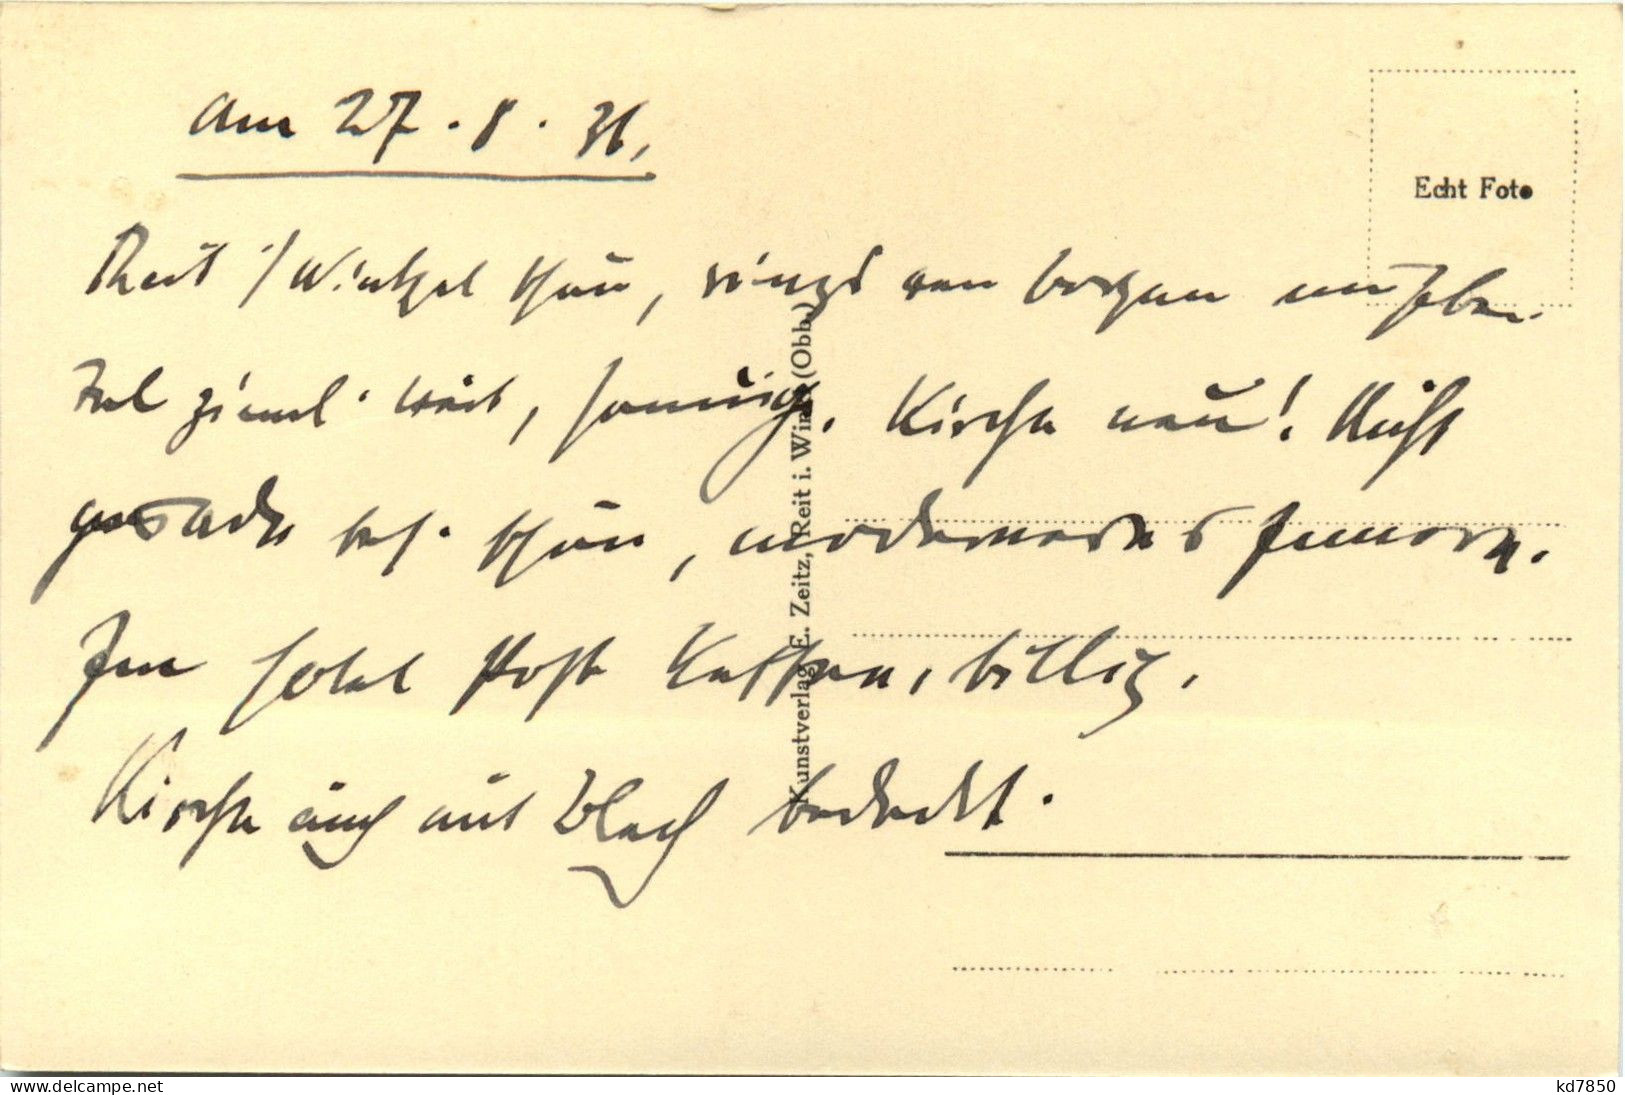 am 27.8.36.
Echt Foto
Reit i/Winkel schön, rings von bergen umgeben.
Tal zieml. weit, sonnig. Kirche neu! Nicht
gerade bes. schön, moderneres Innere.
Im Hotel Post Kaffee, billig.
Kirche auch mit Blech bedeckt.
Kunstverlag E. Zeitz, Reit i. Winkl (Obb.)
www.delcampe.net
kd7850